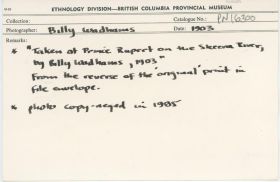 ETHNOLOGY DIVISION—BRITISH COLUMBIA PROVINCIAL MUSEUM
Collection: Catalogue No.: PN 16200
Photographer: Billy Wadhams Date: 1903
Remarks:
* "Taken at Prince Rupert on the Skeena River,
by Billy Wadhams, 1903"
From the reverse of the 'original' print in
file envelope.
* photo copy-neged in 1985